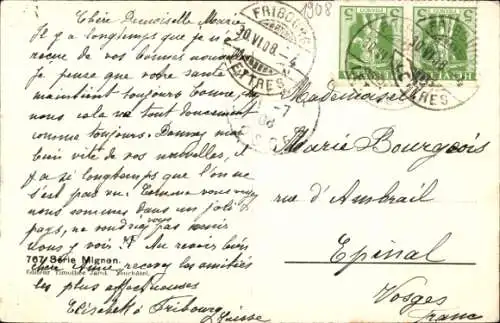 1908
Chère Demoiselle Marie
Il y a longtemps que je n'ai
reçue de vos bonnes nouvelles
je pense que votre santé
maintient toujours bonne, chez
nous cela va tout doucement
comme toujours. Donnez moi
bien vite de vos nouvelles, il
y a si longtemps que l'on ne
s'est pas vu. Comme vous voyez
nous sommes dans un joli
pays, ne voudriez vous pas venir
nous y voir. Au revoir bien
chère Amie recevez les amitiés
les plus affectueuses
Elisabeth à Fribourg
Suisse
767 Série Mignon.
FRIBOURG
30.VI.08.-4
LETTRES
5
5
HELVETIA
HELVETIA
Mademoiselle
Marie Bourgeois
rue d'Ambrail
Epinal
Vosges
France